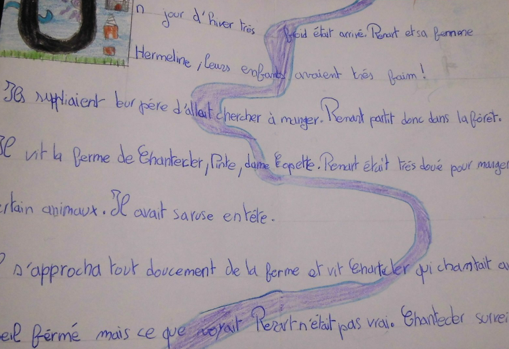 U
n jour d'hiver très froid était arrivé. Renart et sa femme
Hermeline, leurs enfants avaient très faim !
Ils suppliaient leur père d'allait chercher à manger. Renart partit donc dans la fôret.
Il vit la ferme de Chantecler, Pinte, dame Copette. Renart était très doué pour manger
certain animaux. Il avait sa ruse en tête.
s'approcha tout doucement de la ferme et vit Chantecler qui chantait
fermé mais ce que voyait Renart n'était pas vrai. Chantecler